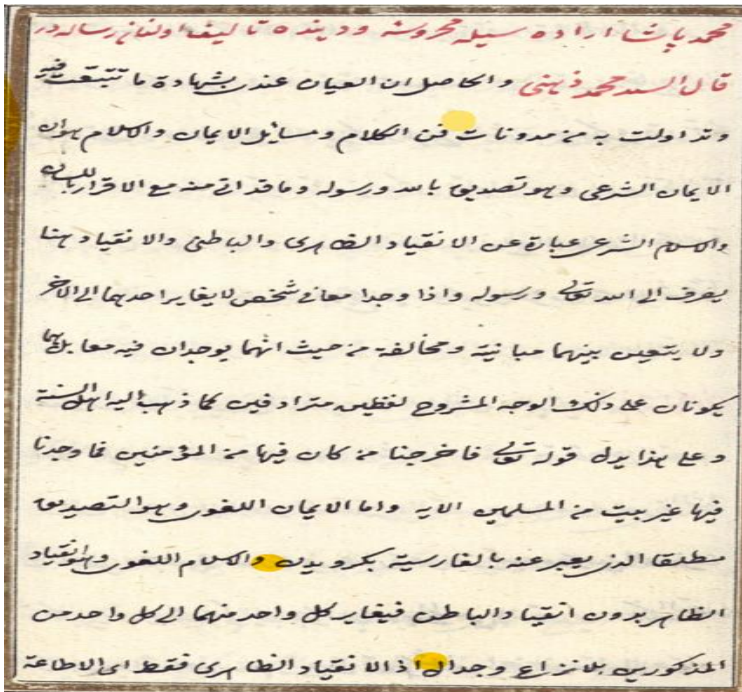 محمد پاشا اراده سيله محروسهٔ ودينده تأليف اولنان رساله در
قال السيد محمد ذهنى والحاصل ان العيان عندى بشهادة ما تتبعت فيه
وتداولت به من مدونات فن الكلام ومسائل الايمان والاسلام هو ان
الايمان الشرعى وهو تصديق بالله ورسوله وما قد اتى منه مع الاقرار باللسان
والاسلام الشرعى عبارة عن الانقياد الظاهرى والباطنى والانقياد هنا
يصرف الى الله تعالى ورسوله واذا وجدا معا فى شخص لا يغاير احدهما الى الآخر
ولا يتعين بينهما مباينة ومخالفة من حيث انهما يوجدان فيه معا بل هما
يكونان على ذلك الوجه المشروح لفظين مترادفين كما ذهب اليه اهل السنة
وعلى هذا يدل قوله تعالى فاخرجنا من كان فيها من المؤمنين فما وجدنا
فيها غير بيت من المسلمين الايه واما الايمان اللغوى وهو التصديق
مطلقا الذى يعبر عنه بالفارسية بكرويدن والاسلام اللغوى وهو انقياد
الظاهر بدون انقياد الباطن فيغاير كل واحد منهما الى كل واحد من
المذكورين بلا نزاع وجدال اذ الانقياد الظاهرى فقط اى الاطاعة